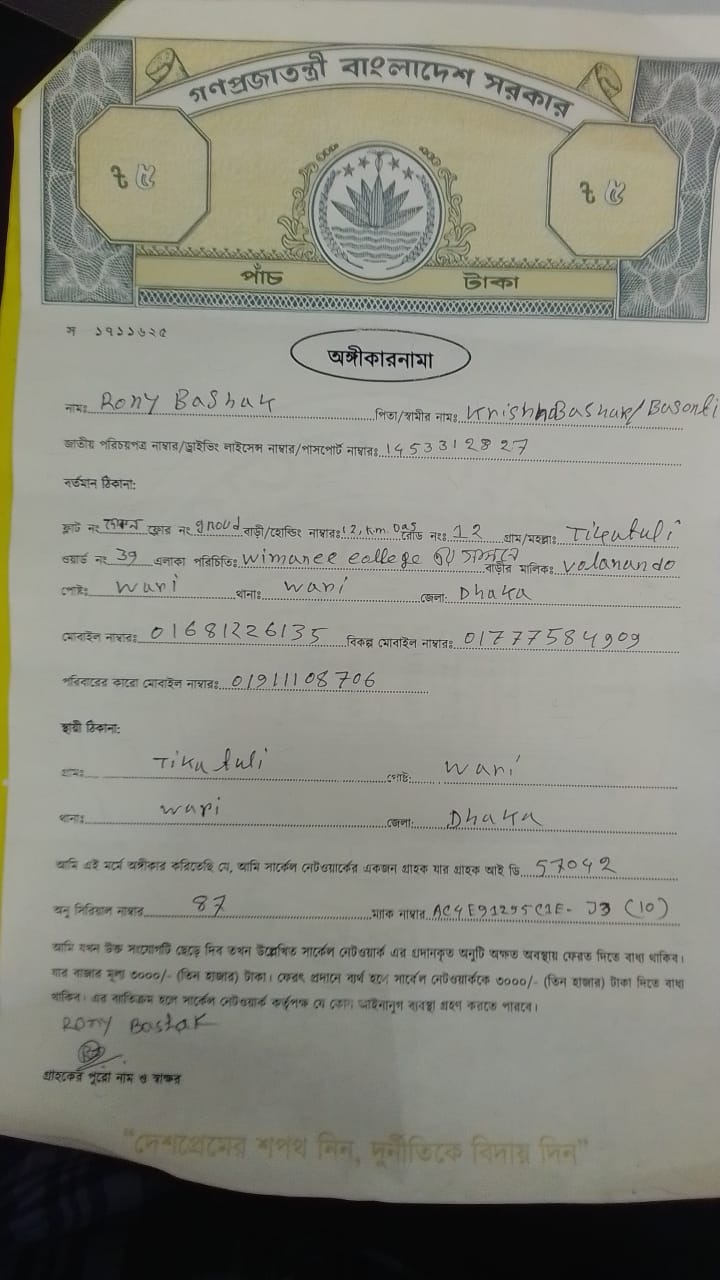 গণপ্রজাতন্ত্রী বাংলাদেশ সরকার
৳ ৫ ৳ ৫
পাঁচ টাকা
স ১৭১১৬২৫
অঙ্গীকারনামা
নামঃ Rony Bashak পিতা/স্বামীর নামঃ Krishna Bashak/Basonti
জাতীয় পরিচয়পত্র নাম্বার/ড্রাইভিং লাইসেন্স নাম্বার/পাসপোর্ট নাম্বারঃ 1453312827
বর্তমান ঠিকানা:
ফ্লাট নং ফ্লোর নং gnoud বাড়ী/হোল্ডিং নাম্বারঃ 12, K.m. Das রোড নংঃ 12 গ্রাম/মহল্লাঃ Tikatuli
ওয়ার্ড নং 39 এলাকা পরিচিতিঃ Wimanee college এর সামনে বাড়ীর মালিকঃ Volanando
পোষ্টঃ Wari থানাঃ Wari জেলা: Dhaka
মোবাইল নাম্বারঃ 01681226135 বিকল্প মোবাইল নাম্বারঃ 01777584909
পরিবারের কারো মোবাইল নাম্বারঃ 01911108706
স্থায়ী ঠিকানা:
গ্রামঃ Tikatuli পোষ্ট: Wari
থানাঃ Wari জেলা: Dhaka
আমি এই মর্মে অঙ্গীকার করিতেছি যে, আমি সার্কেল নেটওয়ার্কের একজন গ্রাহক যার গ্রাহক আই ডি 57042
অনু সিরিয়াল নাম্বার 87 ম্যাক নাম্বার AC4E91295C1E- J3 (10)
আমি যখন উক্ত সংযোগটি ছেড়ে দিব তখন উল্লেখিত সার্কেল নেটওয়ার্ক এর প্রদানকৃত অনুটি অক্ষত অবস্থায় ফেরত দিতে বাধ্য থাকিব।
যার বাজার মূল্য ৩০০০/- (তিন হাজার) টাকা। ফেরৎ প্রদানে ব্যর্থ হলে সার্কেল নেটওয়ার্ককে ৩০০০/- (তিন হাজার) টাকা দিতে বাধ্য
থাকিব। এর ব্যতিক্রম হলে সার্কেল নেটওয়ার্ক কর্তৃপক্ষ যে কোন আইনানুগ ব্যবস্থা গ্রহণ করতে পারবে।
Rony Bashak
গ্রাহকের পুরো নাম ও স্বাক্ষর
"দেশপ্রেমের শপথ নিন, দুর্নীতিকে বিদায় দিন"